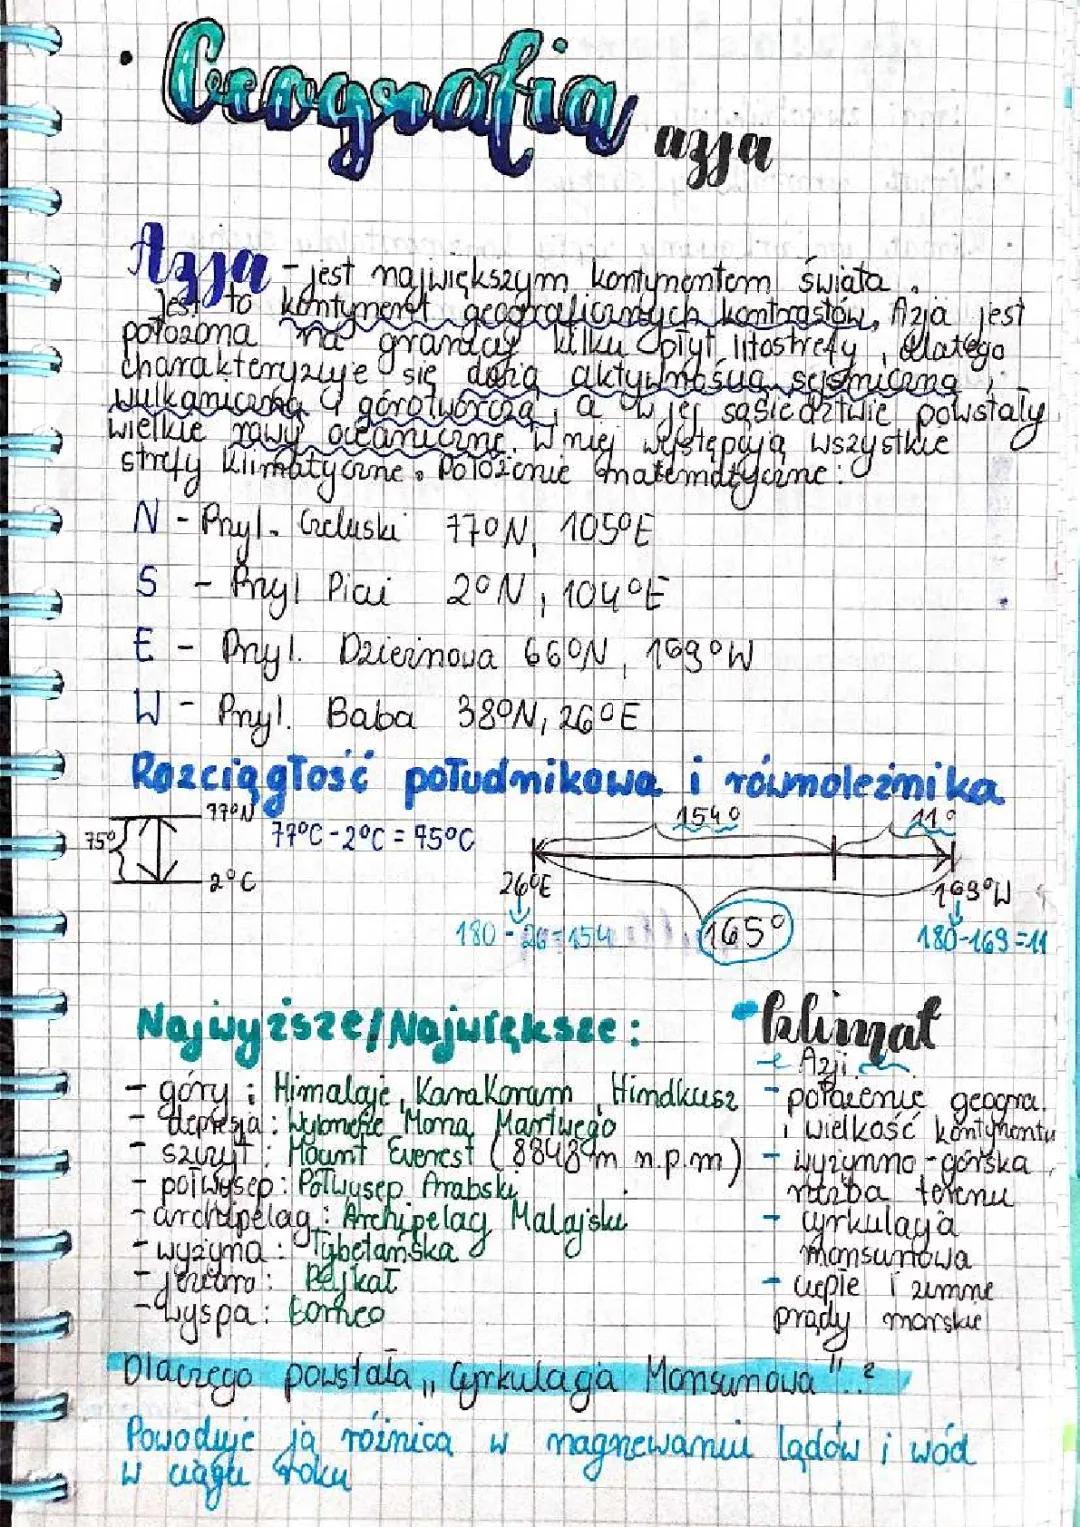 Geografia
azja
Azja - jest największym kontynentem świata.
Jest to kontynent geograficznych kontrastów, Azja jest
położona na granicy kilku płyt litosfery, dlatego
charakteryzuje się dużą aktywnością sejsmiczną,
wulkaniczną i górotwórczą, a w jej sąsiedztwie powstały
wielkie rowy oceaniczne. W niej występują wszystkie
strefy klimatyczne. Położenie matematyczne:
N - Przyl. Czeluski 77°N, 105°E
S - Przyl Piai 2°N, 104°E
E - Przyl. Dzieżniowa 66°N, 169°W
W - Przyl. Baba 38°N, 26°E
Rozciągłość południkowa i równoleżnika
77°N 154° 11°
75° 77°C - 2°C = 75°C
2°C 26°E 169°W
180 - 26 = 154 165° 180-169=11
Najwyższe/Największe:
- góry: Himalaje, Karakorum, Hindkusz
- depresja: Wybrzeże Morza Martwego
- szczyt: Mount Everest (8848 m n.p.m)
- półwysep: Półwysep Arabski
- archipelag: Archipelag Malajski
- wyżyna: Tybetańska
- jezioro: Bajkał
- wyspa: Borneo
Klimat
Azji
- położenie geogra.
i wielkość kontynentu
- wyżynno-górska
rzeźba terenu
- cyrkulacja
monsunowa
- ciepłe i zimne
prądy morskie
Dlaczego powstała „Cyrkulacja Monsunowa"..?
Powoduje ją różnica w nagrzewaniu lądów i wód
w ciągu roku